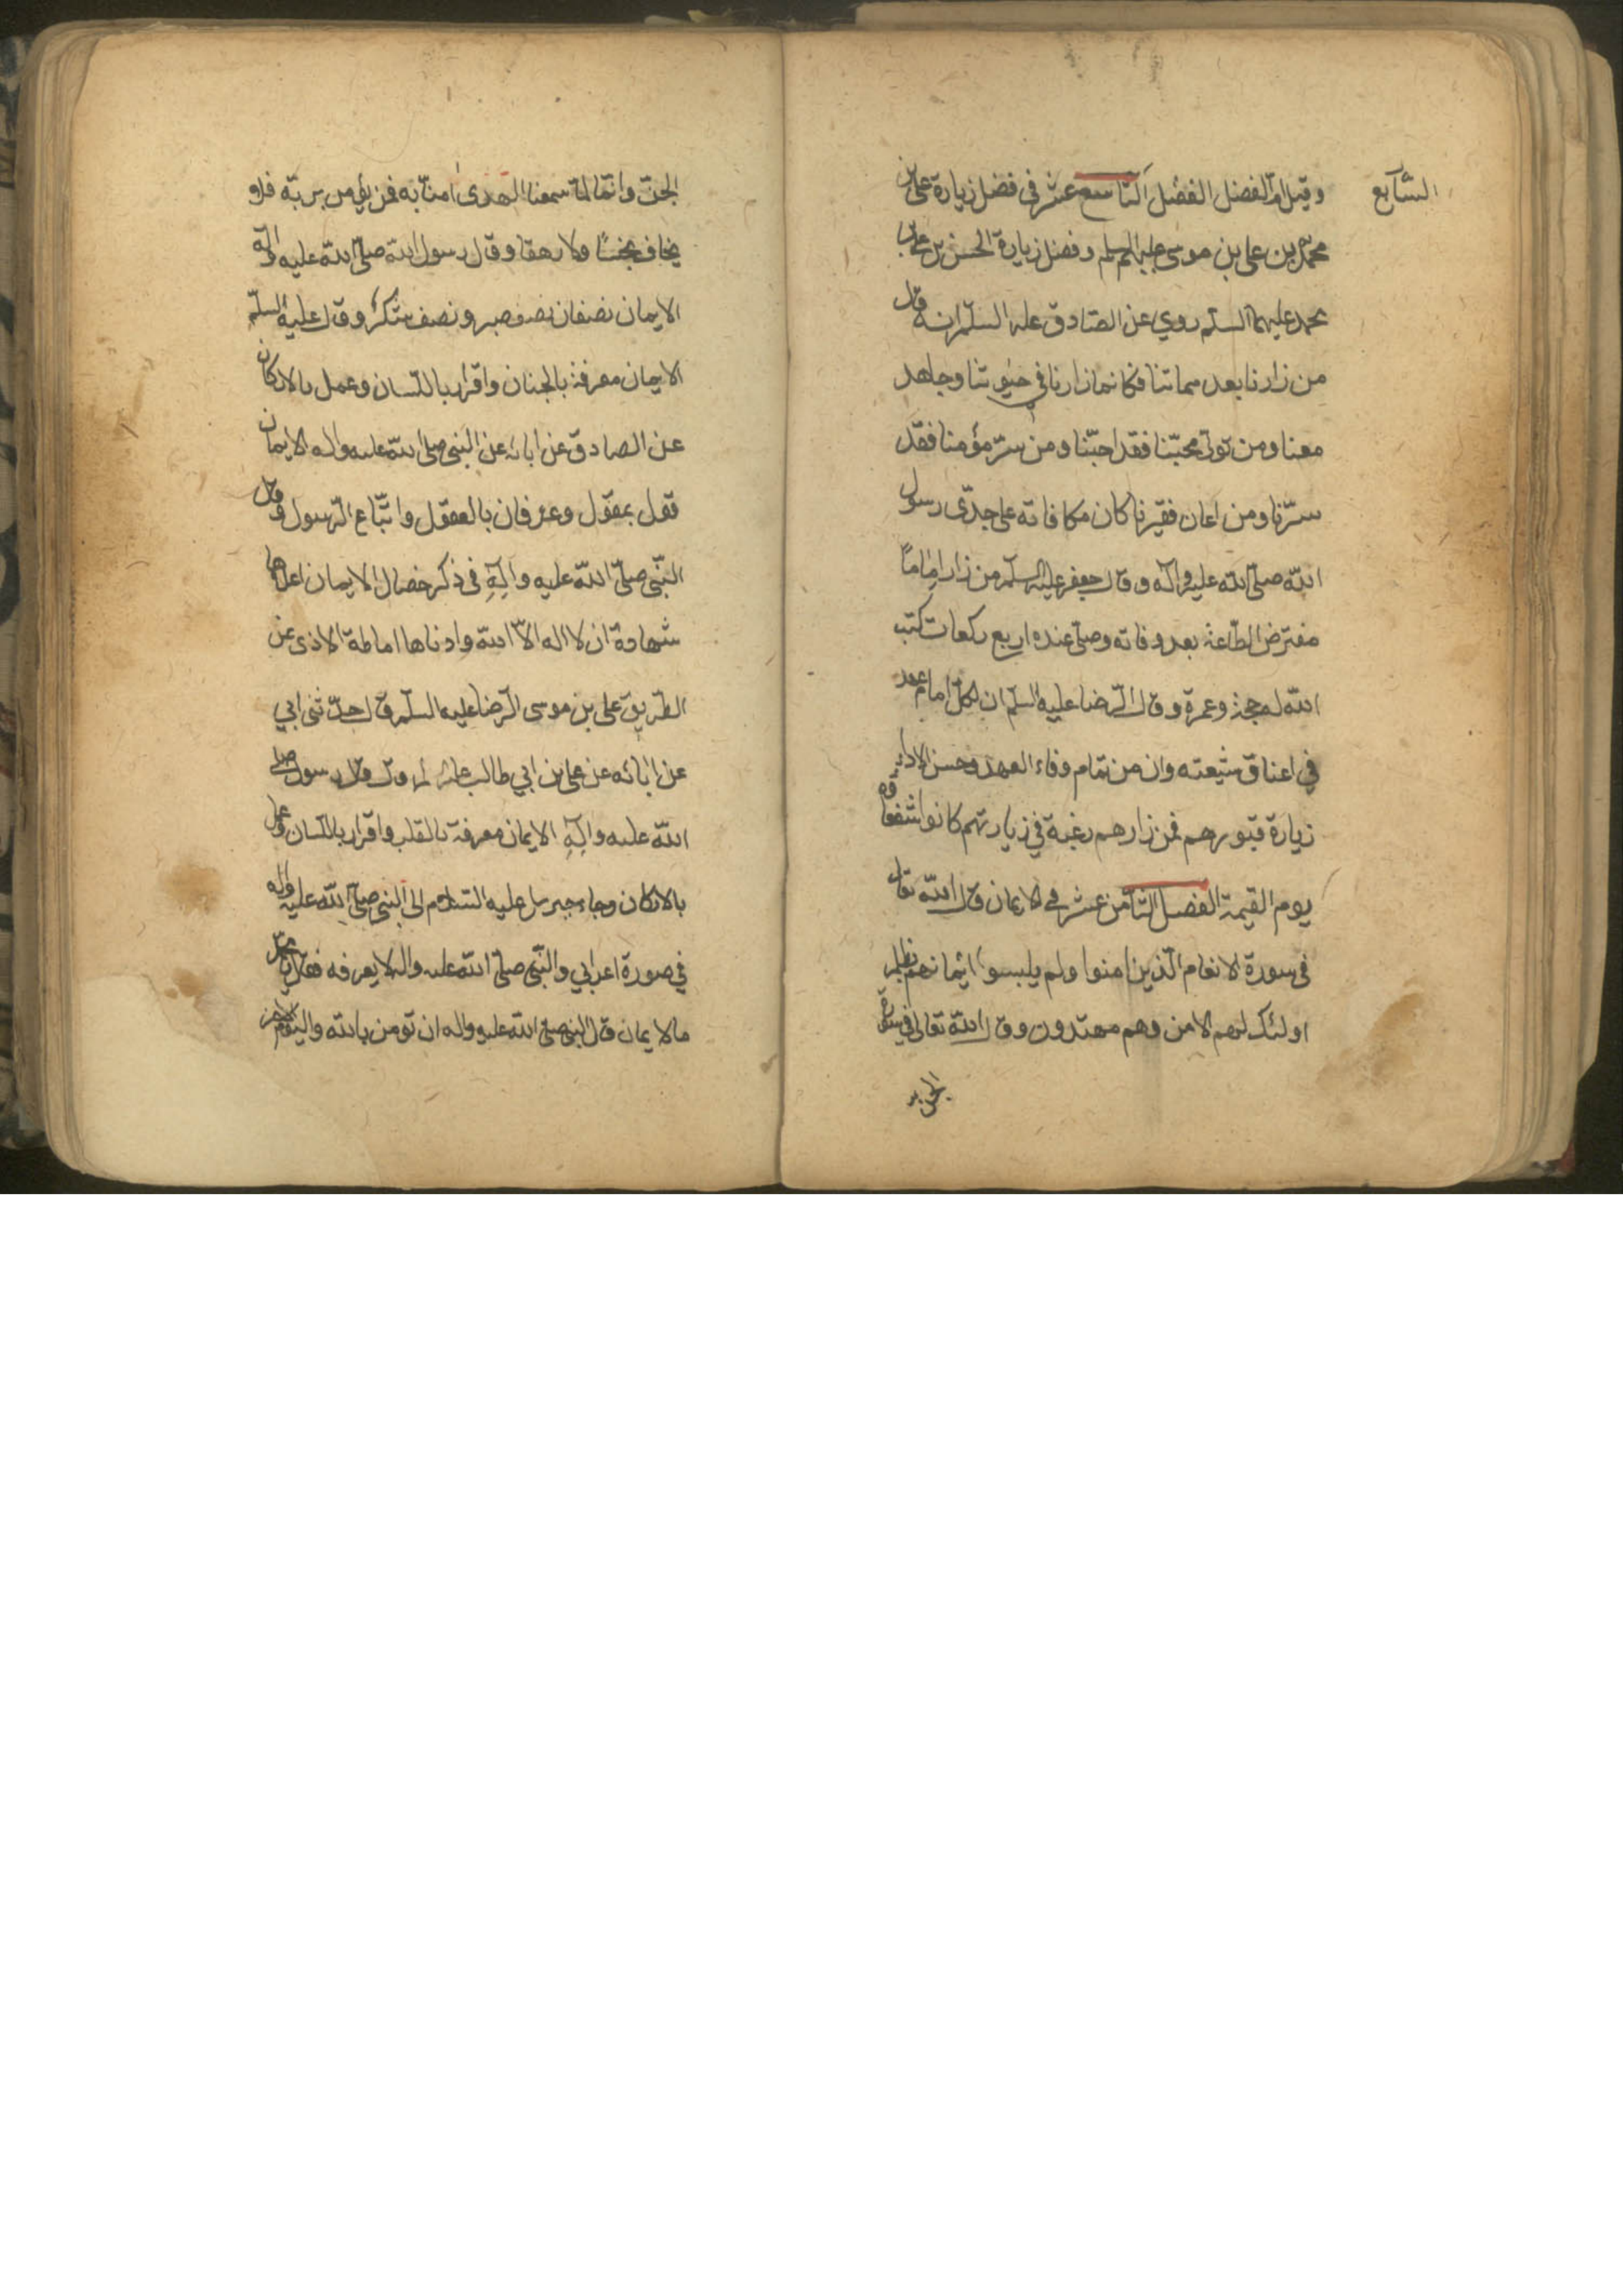 السّابع
وقيل ام الفضل الفصل التاسع عشر فى فضل زيارة على بن
محمد بن على بن موسى عليهم السلم وفضل زيارة الحسن بن على بن
محمد عليهما السلم روي عن الصّادق عليه السلم انه قال
من زارنا بعد مماتنا فكانما زارنا في حيوتنا وجاهد
معنا ومن تولّى محبّنا فقد احبّنا ومن سرّ مؤمنا فقد
سرّنا ومن اعان فقيرنا كان مكافاته على جدّى رسول
الله صلّى الله عليه وآله وقال جعفر عليه السلم من زار اماماً
مفترض الطاعة بعد وفاته وصلّى عنده اربع ركعات كتب
الله له حجة وعمرة وقال الرّضا عليه السلم ان لكلّ امام عهد
في اعناق شيعته وان من تمام وفاء العهد وحسن الاداء
زيارة قبورهم فمن زارهم رغبة في زيارتهم كانوا شفعاؤه
يوم القيمة الفصل الثامن عشر في الايمان قال الله تعالى
فى سورة الانعام الّذين امنوا ولم يلبسوا ايمانهم بظلم
اولئك لهم الامن وهم مهتدون وقال الله تعالى في سورة
الجن
الجنّ وانّا لمّا سمعنا الهدى امنّا به فمن يؤمن بربّه فلا
يخاف بخساً ولا رهقا وقال رسول الله صلّى الله عليه وآله
الايمان نصفان نصف صبر ونصف شكر وقال عليه السلم
الايمان معرفة بالجنان واقرار باللّسان وعمل بالاركان
عن الصادق عن ابائه عن النبى صلى الله عليه واله الايمان
قول بمقول وعرفان بالعقول واتّباع الرّسول وقال
النّبى صلّى الله عليه وآلِهِ فى ذكر خصال الايمان اعلاها
شهادة ان لا اله الاّ الله وادناها اماطة الاذى عن
الطّريق على بن موسى الرّضا عليه السلم قال حدّثنى ابي
عن ابائه عن على بن ابي طالب قال قال رسول صلى
الله عليه وآلِهِ الايمان معرفة بالقلب واقرار باللّسان وعمل
بالاركان وجاء جبرئيل عليه السّلام الى النبى صلّى الله عليه واله
في صورة اعرابي والنّبى صلّى الله عليه واله لا يعرفه فقال يا محمد
ما الايمان قال النبى صلى الله عليه واله ان تومن بالله واليوم الاخر